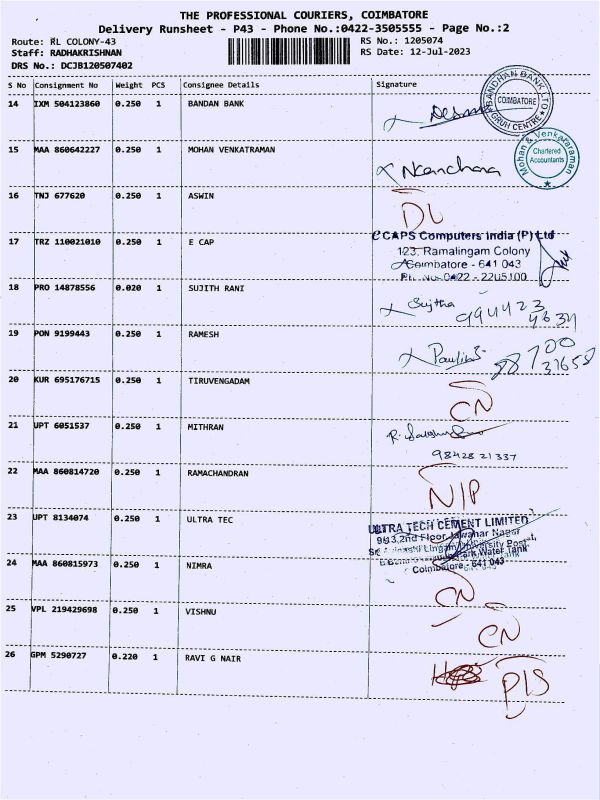 THE PROFESSIONAL COURIERS, COIMBATORE
Delivery Runsheet - P43 - Phone No.:0422-3505555 - Page No.:2
Route: RL COLONY-43 RS No.: 1205074
Staff: RADHAKRISHNAN RS Date: 12-Jul-2023
DRS No.: DCJB120507402
S No Consignment No Weight PCS Consignee Details Signature
14 IXM 504123860 0.250 1 BANDAN BANK
BANDHAN BANK LTD COIMBATORE GRUH CENTRE
15 MAA 860642227 0.250 1 MOHAN VENKATRAMAN
Mohan & Venkataraman Chartered Accountants
16 TNJ 677620 0.250 1 ASWIN DL
17 TRZ 110021010 0.250 1 E CAP
CAPS Computers india (P) Ltd
123, Ramalingam Colony
Coimbatore - 641 043
Ph. No 0422 - 2205100
18 PRO 14878556 0.020 1 SUJITH RANI Sujitha
994423
4634
19 PON 9199443 0.250 1 RAMESH
88700
31658
20 KUR 695176715 0.250 1 TIRUVENGADAM CN
21 UPT 6051537 0.250 1 MITHRAN
98428 21337
22 MAA 860814720 0.250 1 RAMACHANDRAN NIP
23 UPT 8134074 0.250 1 ULTRA TEC
ULTRA TECH CEMENT LIMITED
2nd Floor, Jawahar Nagar
Lingam University Post,
Water Tank
Coimbatore - 641 043
24 MAA 860815973 0.250 1 NIMRA CN
25 VPL 219429698 0.250 1 VISHNU CN
26 GPM 5290727 0.220 1 RAVI G NAIR PIS